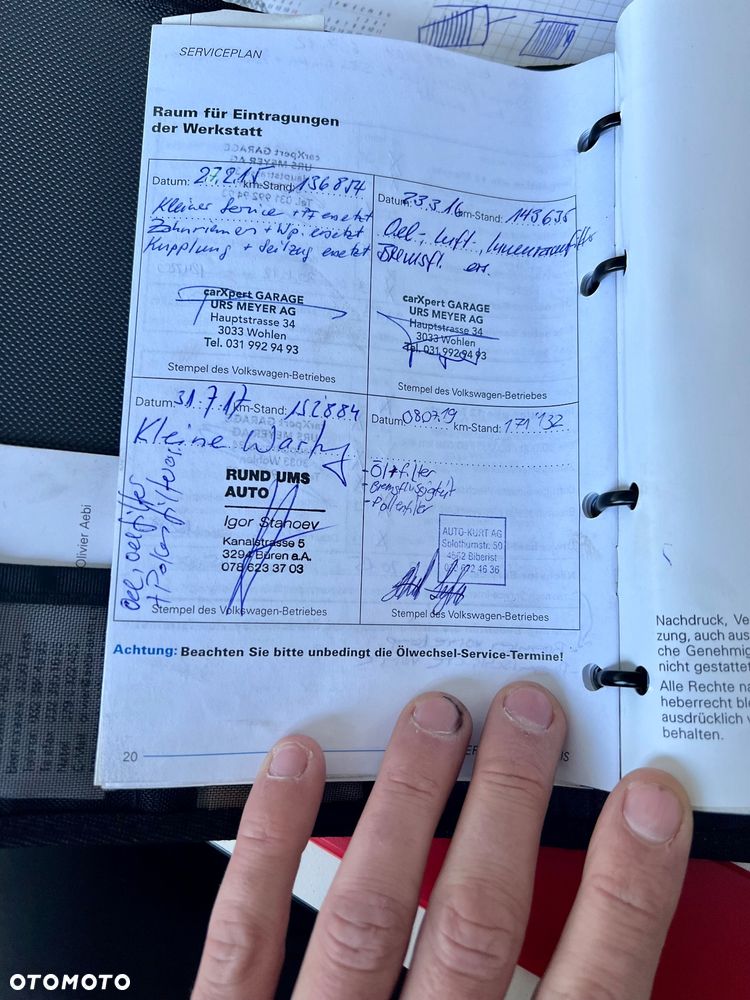 SERVICEPLAN
Raum für Eintragungen
der Werkstatt
Datum: 27.2.15 km-Stand: 136854
Kleiner Service + Pf ersetzt
Zahnriemen + Wp. ersetzt
Kupplung + Seilzug ersetzt
carXpert GARAGE
URS MEYER AG
Hauptstrasse 34
3033 Wohlen
Tel. 031 992 94 93
Stempel des Volkswagen-Betriebes
Datum: 23.3.16 km-Stand: 143635
Oel-, Luft-, Innenraumfilter
Bremsfl. ers.
carXpert GARAGE
URS MEYER AG
Hauptstrasse 34
3033 Wohlen
Tel. 031 992 94 93
Stempel des Volkswagen-Betriebes
Datum: 31.7.17 km-Stand: 152884
Kleine Wartg
Oel, oelfilter
+ Polenfilter
RUND UMS
AUTO
Igor Stanoev
Kanalstrasse 5
3294 Büren a.A.
078 623 37 03
Stempel des Volkswagen-Betriebes
Datum: 080719 km-Stand: 171'132
- Öl + filter
- Bremsflüssigkeit
- Pollenfiler
AUTO-KURT AG
Solothurnstr. 50
4562 Biberist
672 46 36
Stempel des Volkswagen-Betriebes
Achtung: Beachten Sie bitte unbedingt die Ölwechsel-Service-Termine!
20
Olivier Aebi
Nachdruck, Ve
zung, auch aus
che Genehmig
nicht gestattet
Alle Rechte na
heberrecht ble
ausdrücklich v
behalten.
OTOMOTO